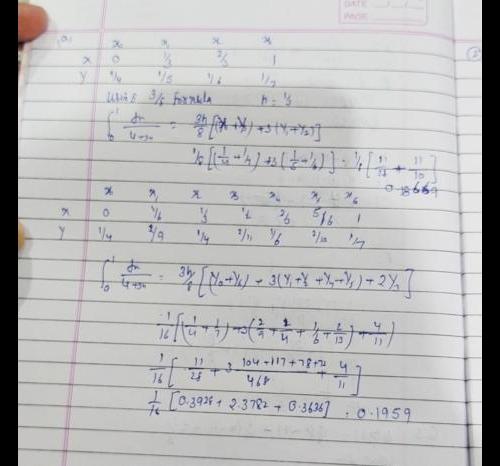 DATE
PAGE
x₀ x₁ x x
x 0 1/3 2/3 1
Y 1/4 1/5 1/6 1/7
Using 3/8 formula h = 1/3
∫₀¹ dx/4+3x = 3h/8 [(Y₀+Y₃) + 3(Y₁+Y₂)]
1/8 + 3(1/5 + 1/6)] = 1/8 [11/28 + 11/10]
x₀ x₁ x x₃ x₄ x₅ x₆
x 0 1/6 1/3 1/2 2/3 5/6 1
Y 1/4 2/9 1/4 2/11 1/6 2/13 1/7
∫₀¹ dx/4+3x = 3h/8 [(Y₀+Y₆) + 3(Y₁+Y₂+Y₄+Y₅) + 2Y₃]
1/16 [(1/4 + 1/7) + 3(2/9 + 1/4 + 1/6 + 2/13) + 4/11]
1/16 [11/28 + 3 104+117+78+72/468 + 4/11]
1/16 [0.3928 + 2.3782 + 0.3636] = 0.1959